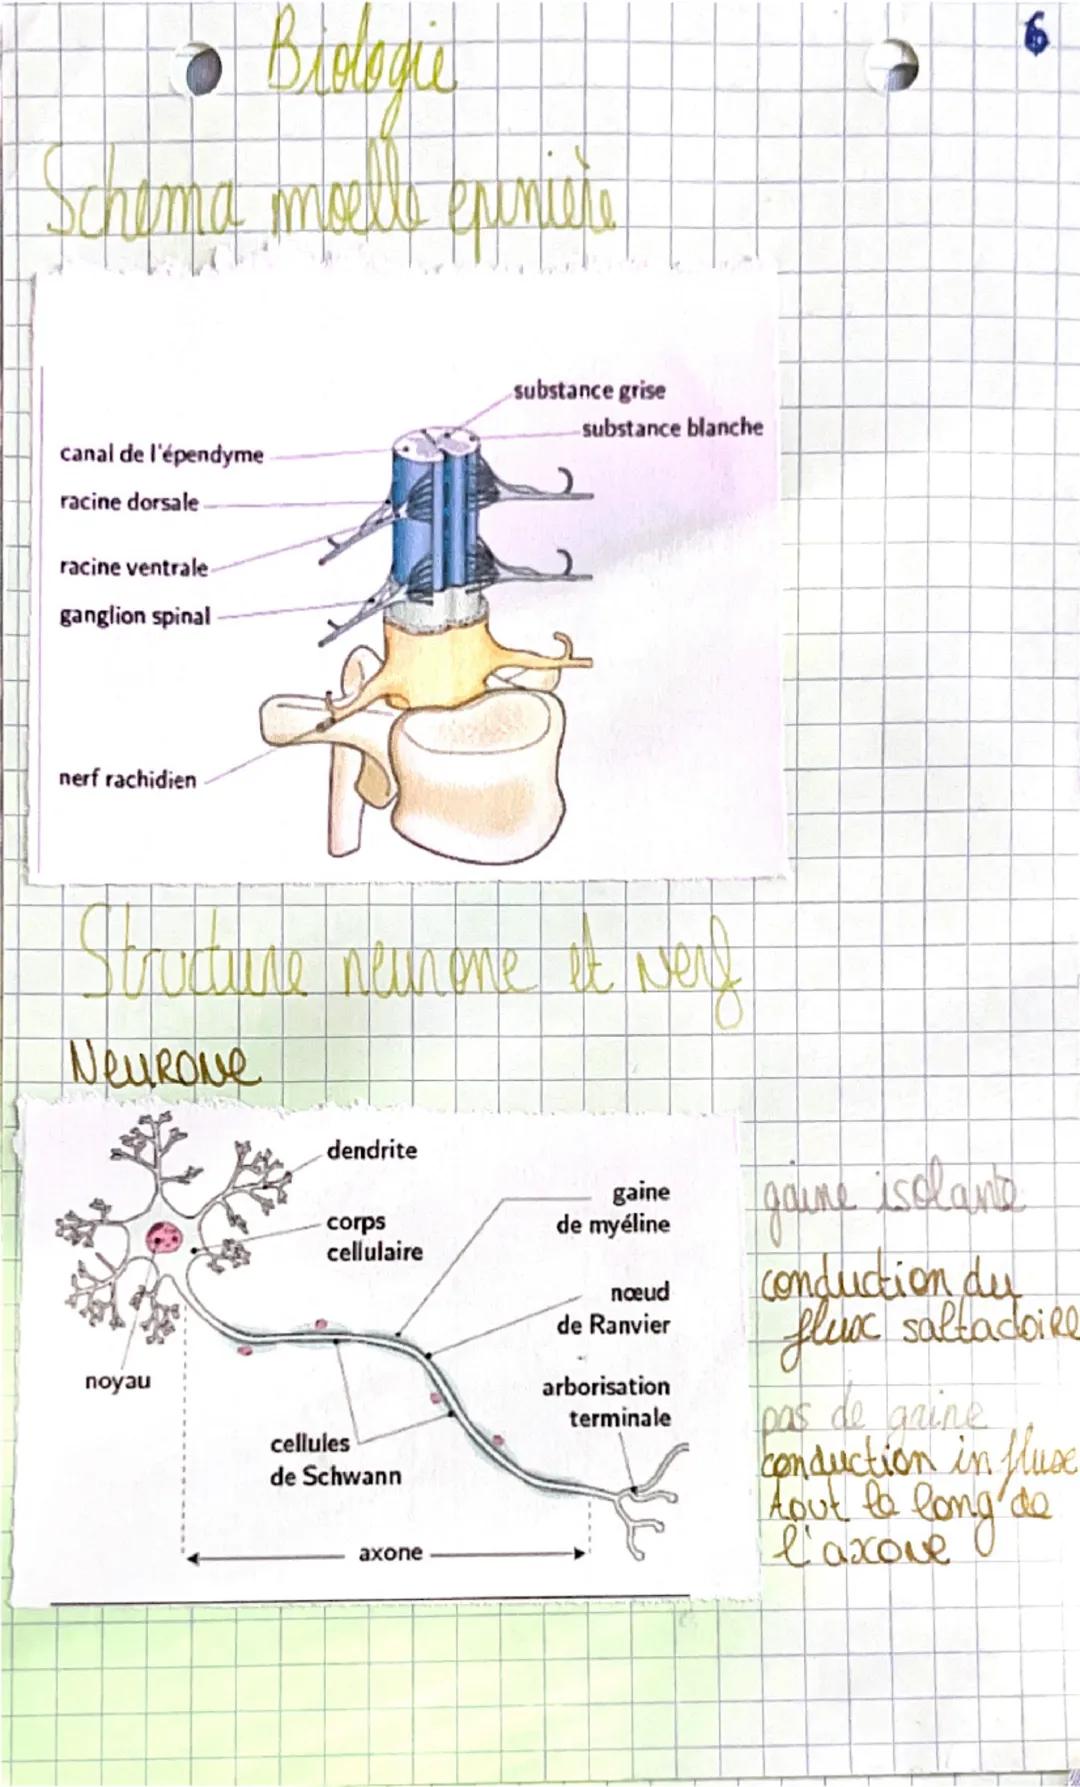 6
Biologie
Schema moelle epinière
substance grise
substance blanche
canal de l'épendyme
racine dorsale
racine ventrale
ganglion spinal
nerf rachidien
Structure neurone et nerf
NeuRone
dendrite
corps
cellulaire
gaine
de myéline
nœud
de Ranvier
arborisation
terminale
noyau
cellules
de Schwann
axone
gaine isolante
conduction du
flux saltatoire
pas de gaine
conduction influx
tout le long de
l'axone